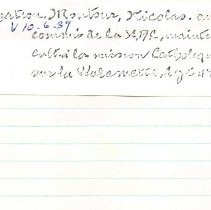 ation. Montour, Nicolas. an
V 10-6-37
commis de la HBC, mainte
cult à la mission Catholiq
sur la Walamette, agé 4